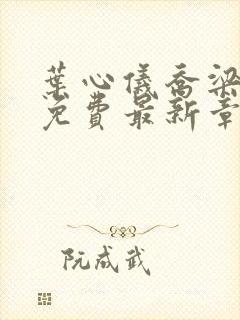 葉心儀喬梁
免費最新章
阮成武